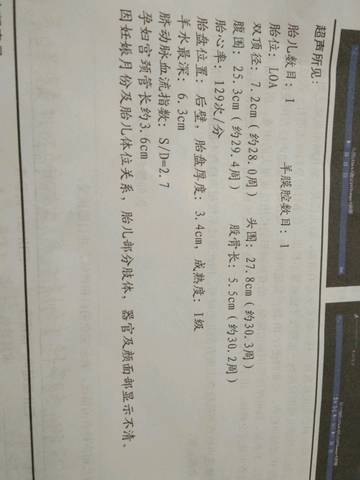 超声所见:
胎儿数目: 1 羊膜腔数目: 1
胎位: LOA
双顶径: 7.2cm(约28.0周) 头围: 27.8cm(约30.3周)
腹围: 25.3cm(约29.4周) 股骨长: 5.5cm(约30.2周)
胎心率: 129次/分
胎盘位置: 后壁, 胎盘厚度: 3.4cm, 成熟度: 1级
羊水最深: 6.3cm
脐动脉血流指数: S/D=2.7
孕妇宫颈管长约3.6cm
因妊娠月份及胎儿体位关系, 胎儿部分肢体、器官及颜面部显示不清。